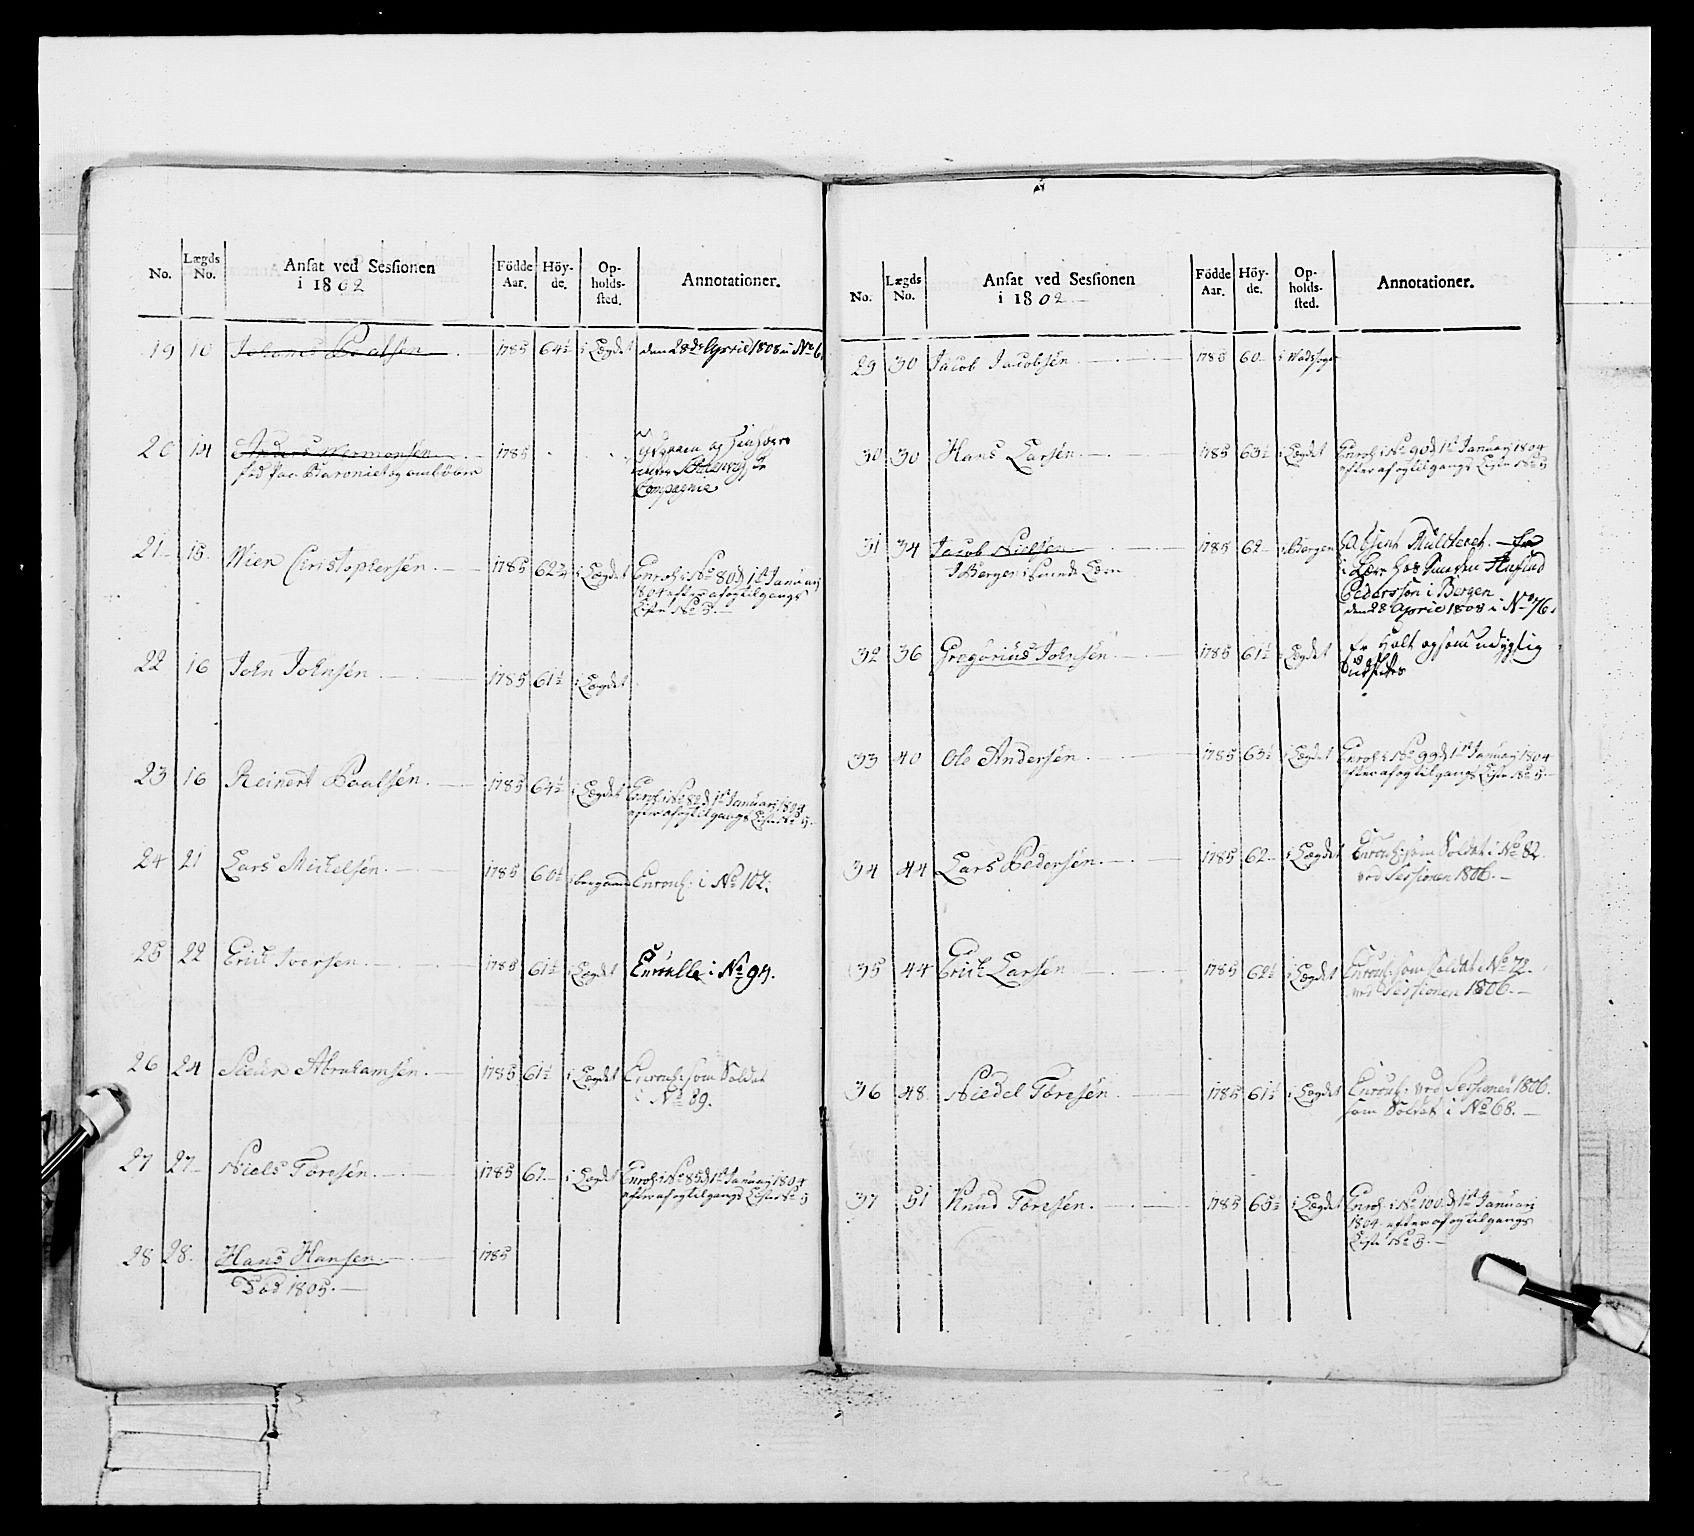 No. Lægds No. Ansat ved Sessionen i 1802 Födde Aar. Höy-de. Op-holds-sted. Annotationer.
19 10 Johannes Paalsen 1785 64½ i Lægdet den 28de Aprie 1808 i No 6
20 14 Anders Mormonsen 1785
fød paa Baroniet og
Compagnie
21 15. Wier Christophersen. 1785 62¼ i Lægdet Enrol: i No 80 d 1st Januarj
1804 efter afog tilgangs
Liste No 3.
22 16 John Johnsen 1785 61½ i Lægdet
23 16 Reinert Paalsen. 1785 64½ i Lægdet Enrol: i No 82 d 1st Januarj 1804
efter afog tilgangs Liste No 3.
24 21 Lars Mickelsen. 1785 60½ Enroul: i No 107.
25 22 Erick Iversen. 1785 61½ i Lægdet Enroulle i No 94.
26 24 Siur Abrahamsen. 1785 61½ i Lægdet Enroul: som Soldat
i No 89.
27 27 Niels Toresen. 1785 67. i Lægdet Enrol: i No 85 d 1st Januarj 1804
efter afog tilgangs Liste No 3
28 28. Hans Hansen. 1785
Død 1805.
No. Lægds No. Ansat ved Sessionen i 1802 Födde Aar. Höy-de. Op-holds-sted. Annotationer.
29 30 Jacob Jacobsen 1785 60
30 30 Hans Larsen. 1785 63½ i Lægdet Enrol: i No 90 d 1st Januarj 1804
efter afog tilgangs Liste No 3
31 34 Jacob Nielsen 1785 62 i Bergen Absent Rulleret.
I Bergen i Lære
i Lære hos
Pedersson i Bergen
den 28 Aprie 1808 i No 76.
32 36 Gregorius Johnsen 1785 61½ i Lægdet Er halt og som udygtig
Udslettes
33 40 Ole Andersen. 1785 63½ i Lægdet Enrol: i No 99 d 1st Januarj 1804
efter afog tilgangs Liste No 3.
34 44 Lars Pedersen. 1785 62 i Lægdet Enroul: som Soldat i No 82.
ved Sessionen 1806.
35 44 Erick Larsen 1785 62½ i Lægdet Enroul: som Soldat i No 72.
ved Sessionen 1806.
36 48. Niedel Toresen 1785 61½ i Lægdet Enroul: ved Sessionen 1806.
som Soldat i No 68.
37 51 Knud Toresen. 1785 65½ i Lægdet Enrol: i No 100 d 1st Januarj
1804 efter afog tilgangs
Liste No 3.